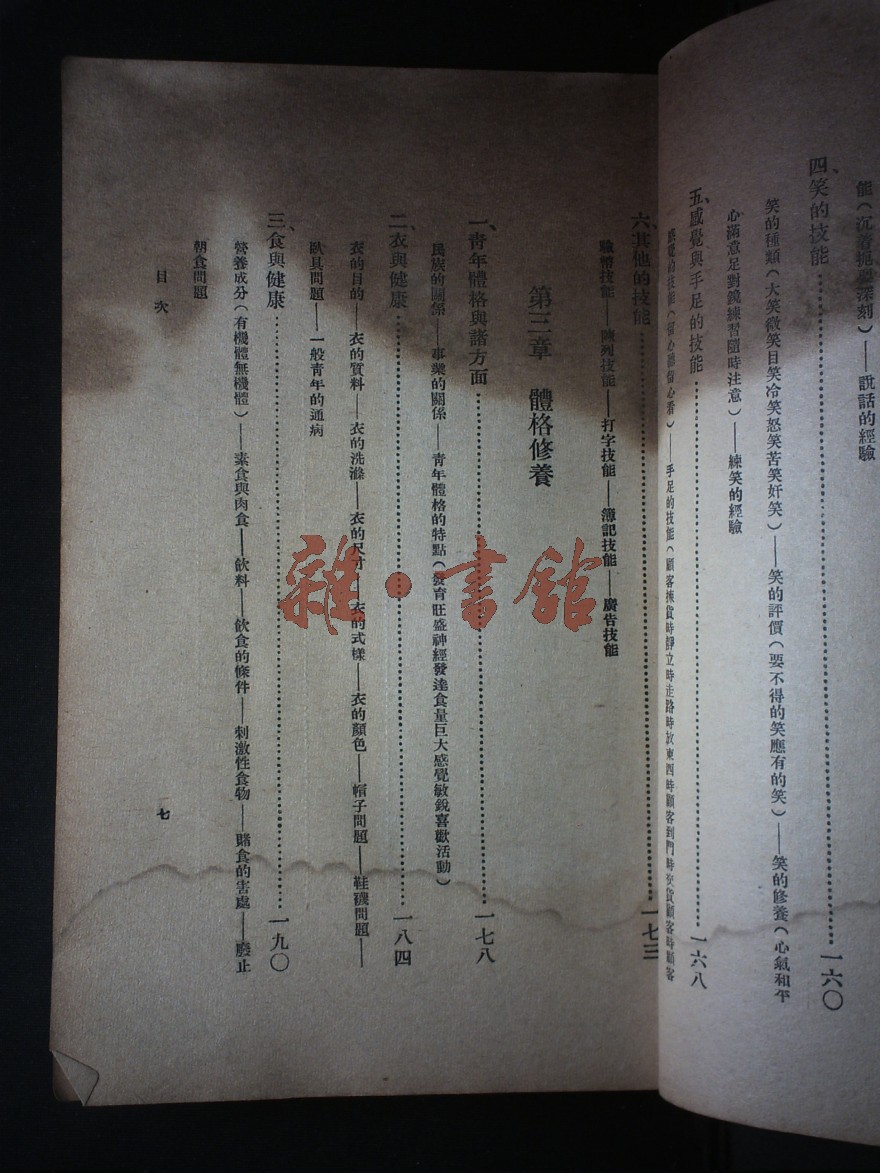 能（沉着扼要深刻）——說話的經驗
四、笑的技能……一六〇
笑的種類（大笑微笑目笑冷笑怒笑苦笑奸笑）——笑的評價（要不得的笑應有的笑）——笑的修養（心氣和平
心滿意足對鏡練習隨時注意）——練笑的經驗
五、感覺與手足的技能……一六八
——手足的技能（顧客揀貨時靜立時走路時放東西時顧客到門時交貨顧客時顧客
六、其他的技能……一七三
技能——陳列技能——打字技能——簿記技能——廣告技能
第三章　體格修養
一、青年體格與諸方面……一七八
民族的關係——事業的關係——青年體格的特點（發育旺盛神經發達食量巨大感覺敏銳喜歡活動）
二、衣與健康……一八四
衣的目的——衣的質料——衣的洗滌——衣的尺寸——衣的式樣——衣的顏色——帽子問題——鞋襪問題——
臥具問題——一般青年的通病
三、食與健康……一九〇
營養成分（有機體無機體）——素食與肉食——飲料——飲食的條件——刺激性食物——賭食的害處——廢止
朝食問題
目次
七
雜·書館